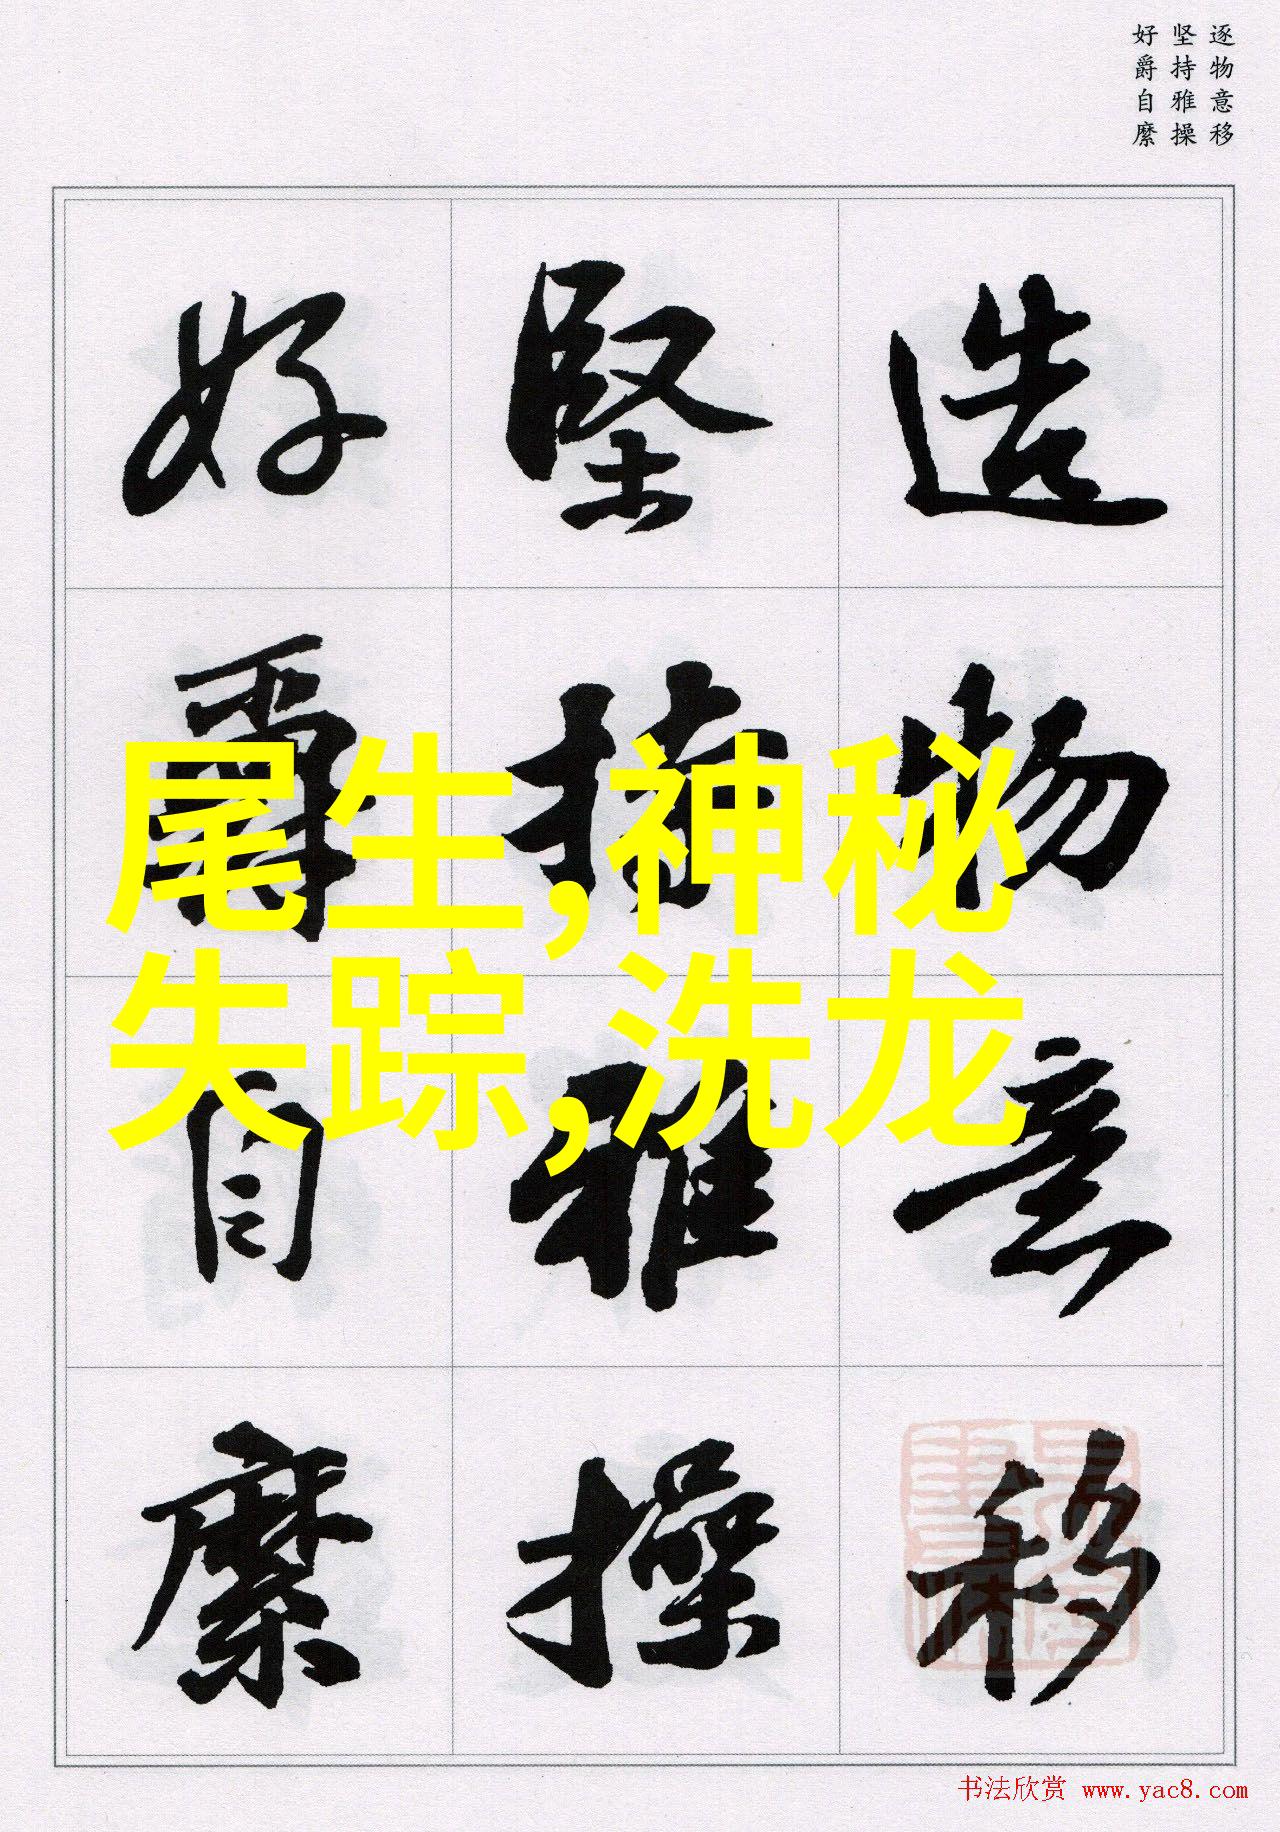 逐物意移
坚持雅操
好爵自縻
造物意移
堅持雅操
好爵自縻
尾生,神秘
失踪,洗龙
书法欣赏 www.yac8.com